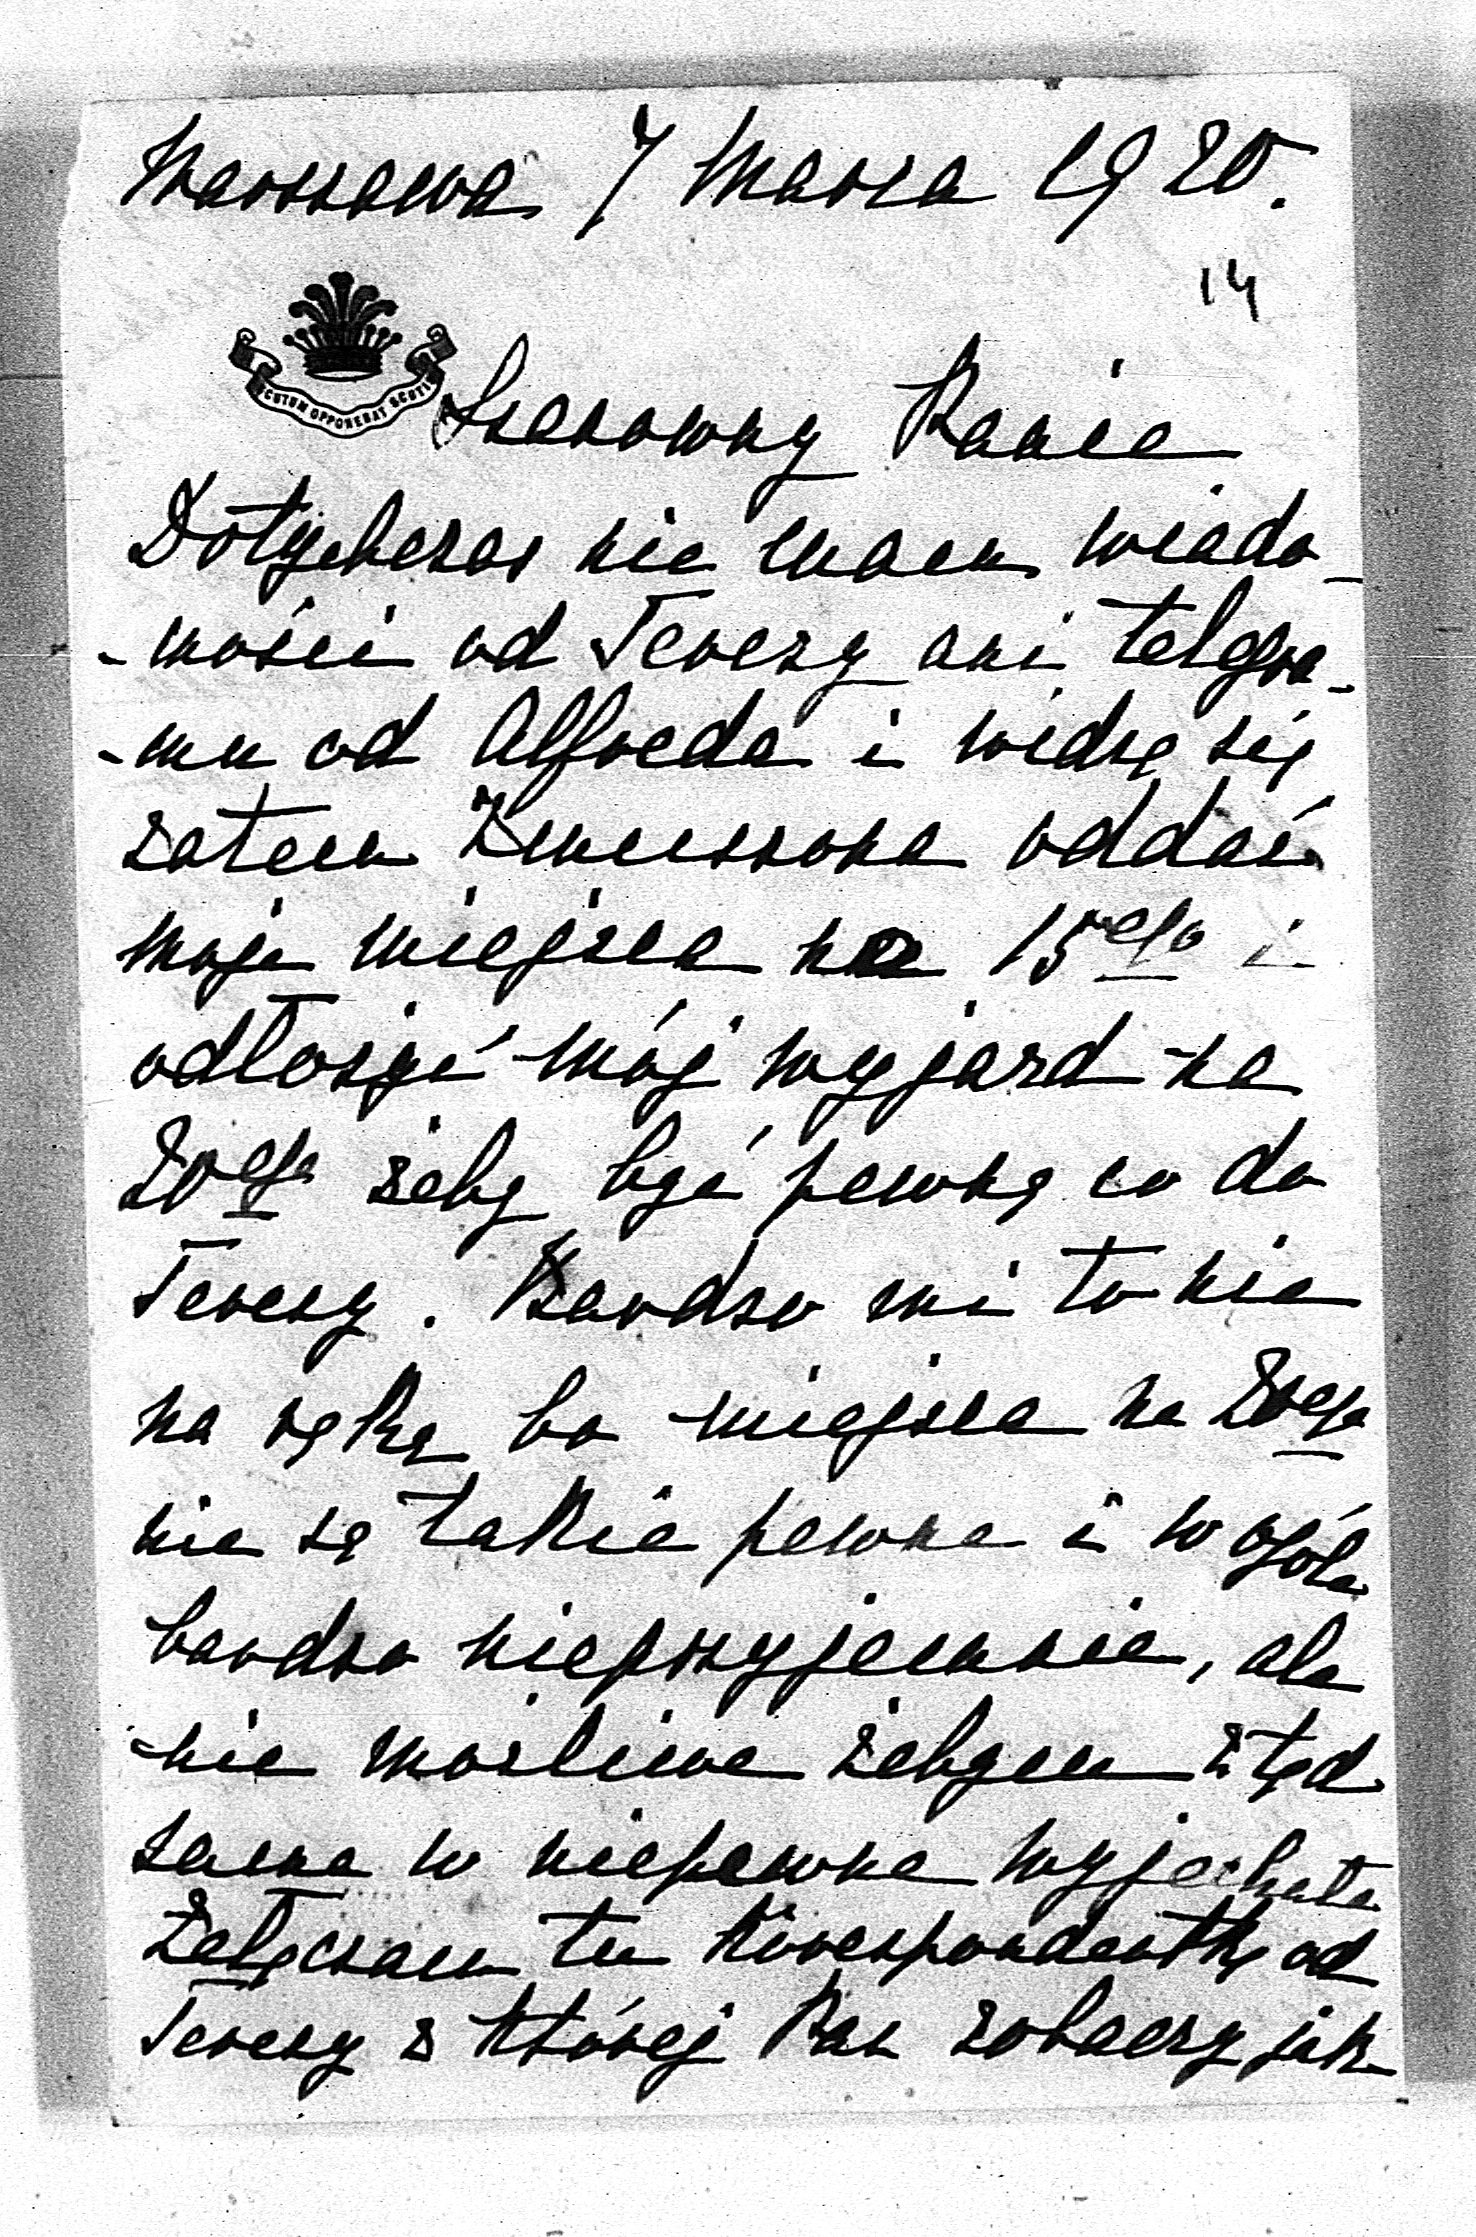 Warszawa 7 Marca 1920.
14
SCUTUM OPPONEBAT SCUTIS
Szanowny Panie
Dotychczas nie mam wiado-
-mości od Tereszy ani telgra-
-mu od Alfreda i widzę się
zatem zmuszona oddać
moje miejsca na 15ego i
odłożyć mój wyjazd na
20ego żeby być pewną co do
Tereszy. Bardzo mi to nie
na rękę bo miejsca na 20ego
nie są takie pewne i w ogóle
bardzo nieprzyjemnie, ale
nie możliwe żebym ztąd
sama w niepewne wyjechała
Załączam tu korespondentkę od
Tereszy z której Pan zobaczy jak